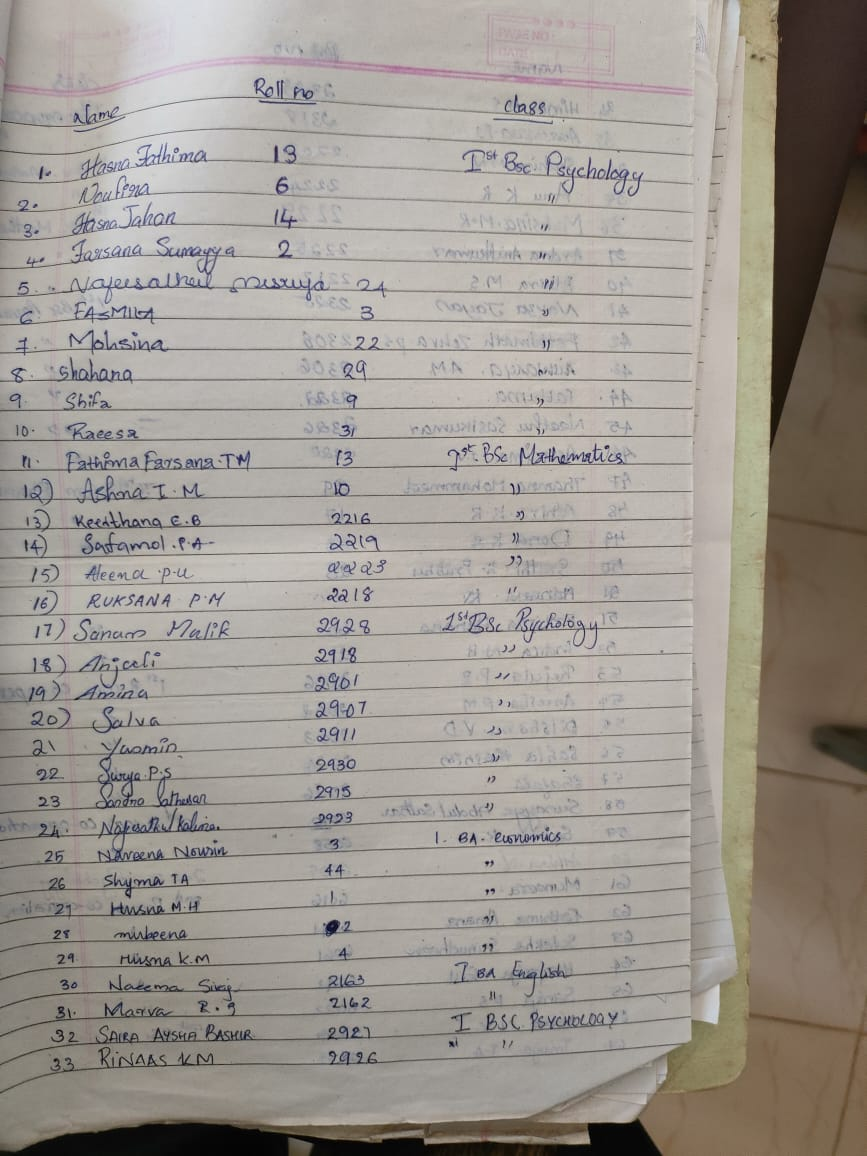 Name Roll no class
1. Hasna Fathima 13 Ist Bsc Psychology
2. Noufira 6 "
3. Hasna Jahan 14 "
4. Farsana Sumayya 2 "
5. 24 "
6 FASMILA 3 "
7. Mohsina 22 "
8. Shahana 29 "
9. Shifa 9 "
10. Raeesa 31 "
11. Fathima Farsana.TM 13 Ist BSc Mathematics
12) Ashna I.M 10 "
13) Keerthana E.B 2216 "
14) Safamol.P.A 2219 "
15) Aleena .p.u 2223 "
16) RUKSANA P.M 2218 "
17) Sanam Malik 2928 Ist BSc Psychology
18) Anjali 2918 "
19) Amina 2901 "
20) Salva 2907
21 Yasmin 2911 "
22 Surya.P.S 2930 "
23 Sandra Sathesan 2915 "
24. 2923 "
25 Naveena Nowrin 3 1. BA. economics
26 Shyma TA 44 "
27 Husna M.H 1 "
28 mubeena 2 "
29. Husna K.M 4 "
30 Naeema Siraj 2163 I BA English
31. Marva R.S 2162 "
32 SAIRA AYSHA BASHIR 2927 I BSC PSYCHOLOGY
33 RINAAS KM 2926 "